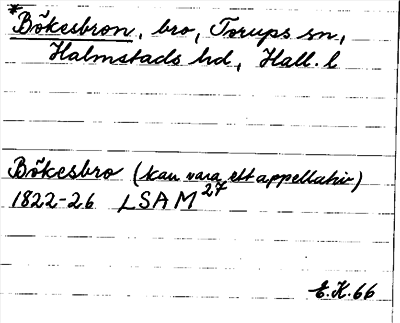 *Bökesbron, bro, Torups sn,
Halmstads hd, Hall. l
Bökesbro (kan vara ett appellativ)
1822-26 LSAM 27
E.K. 66